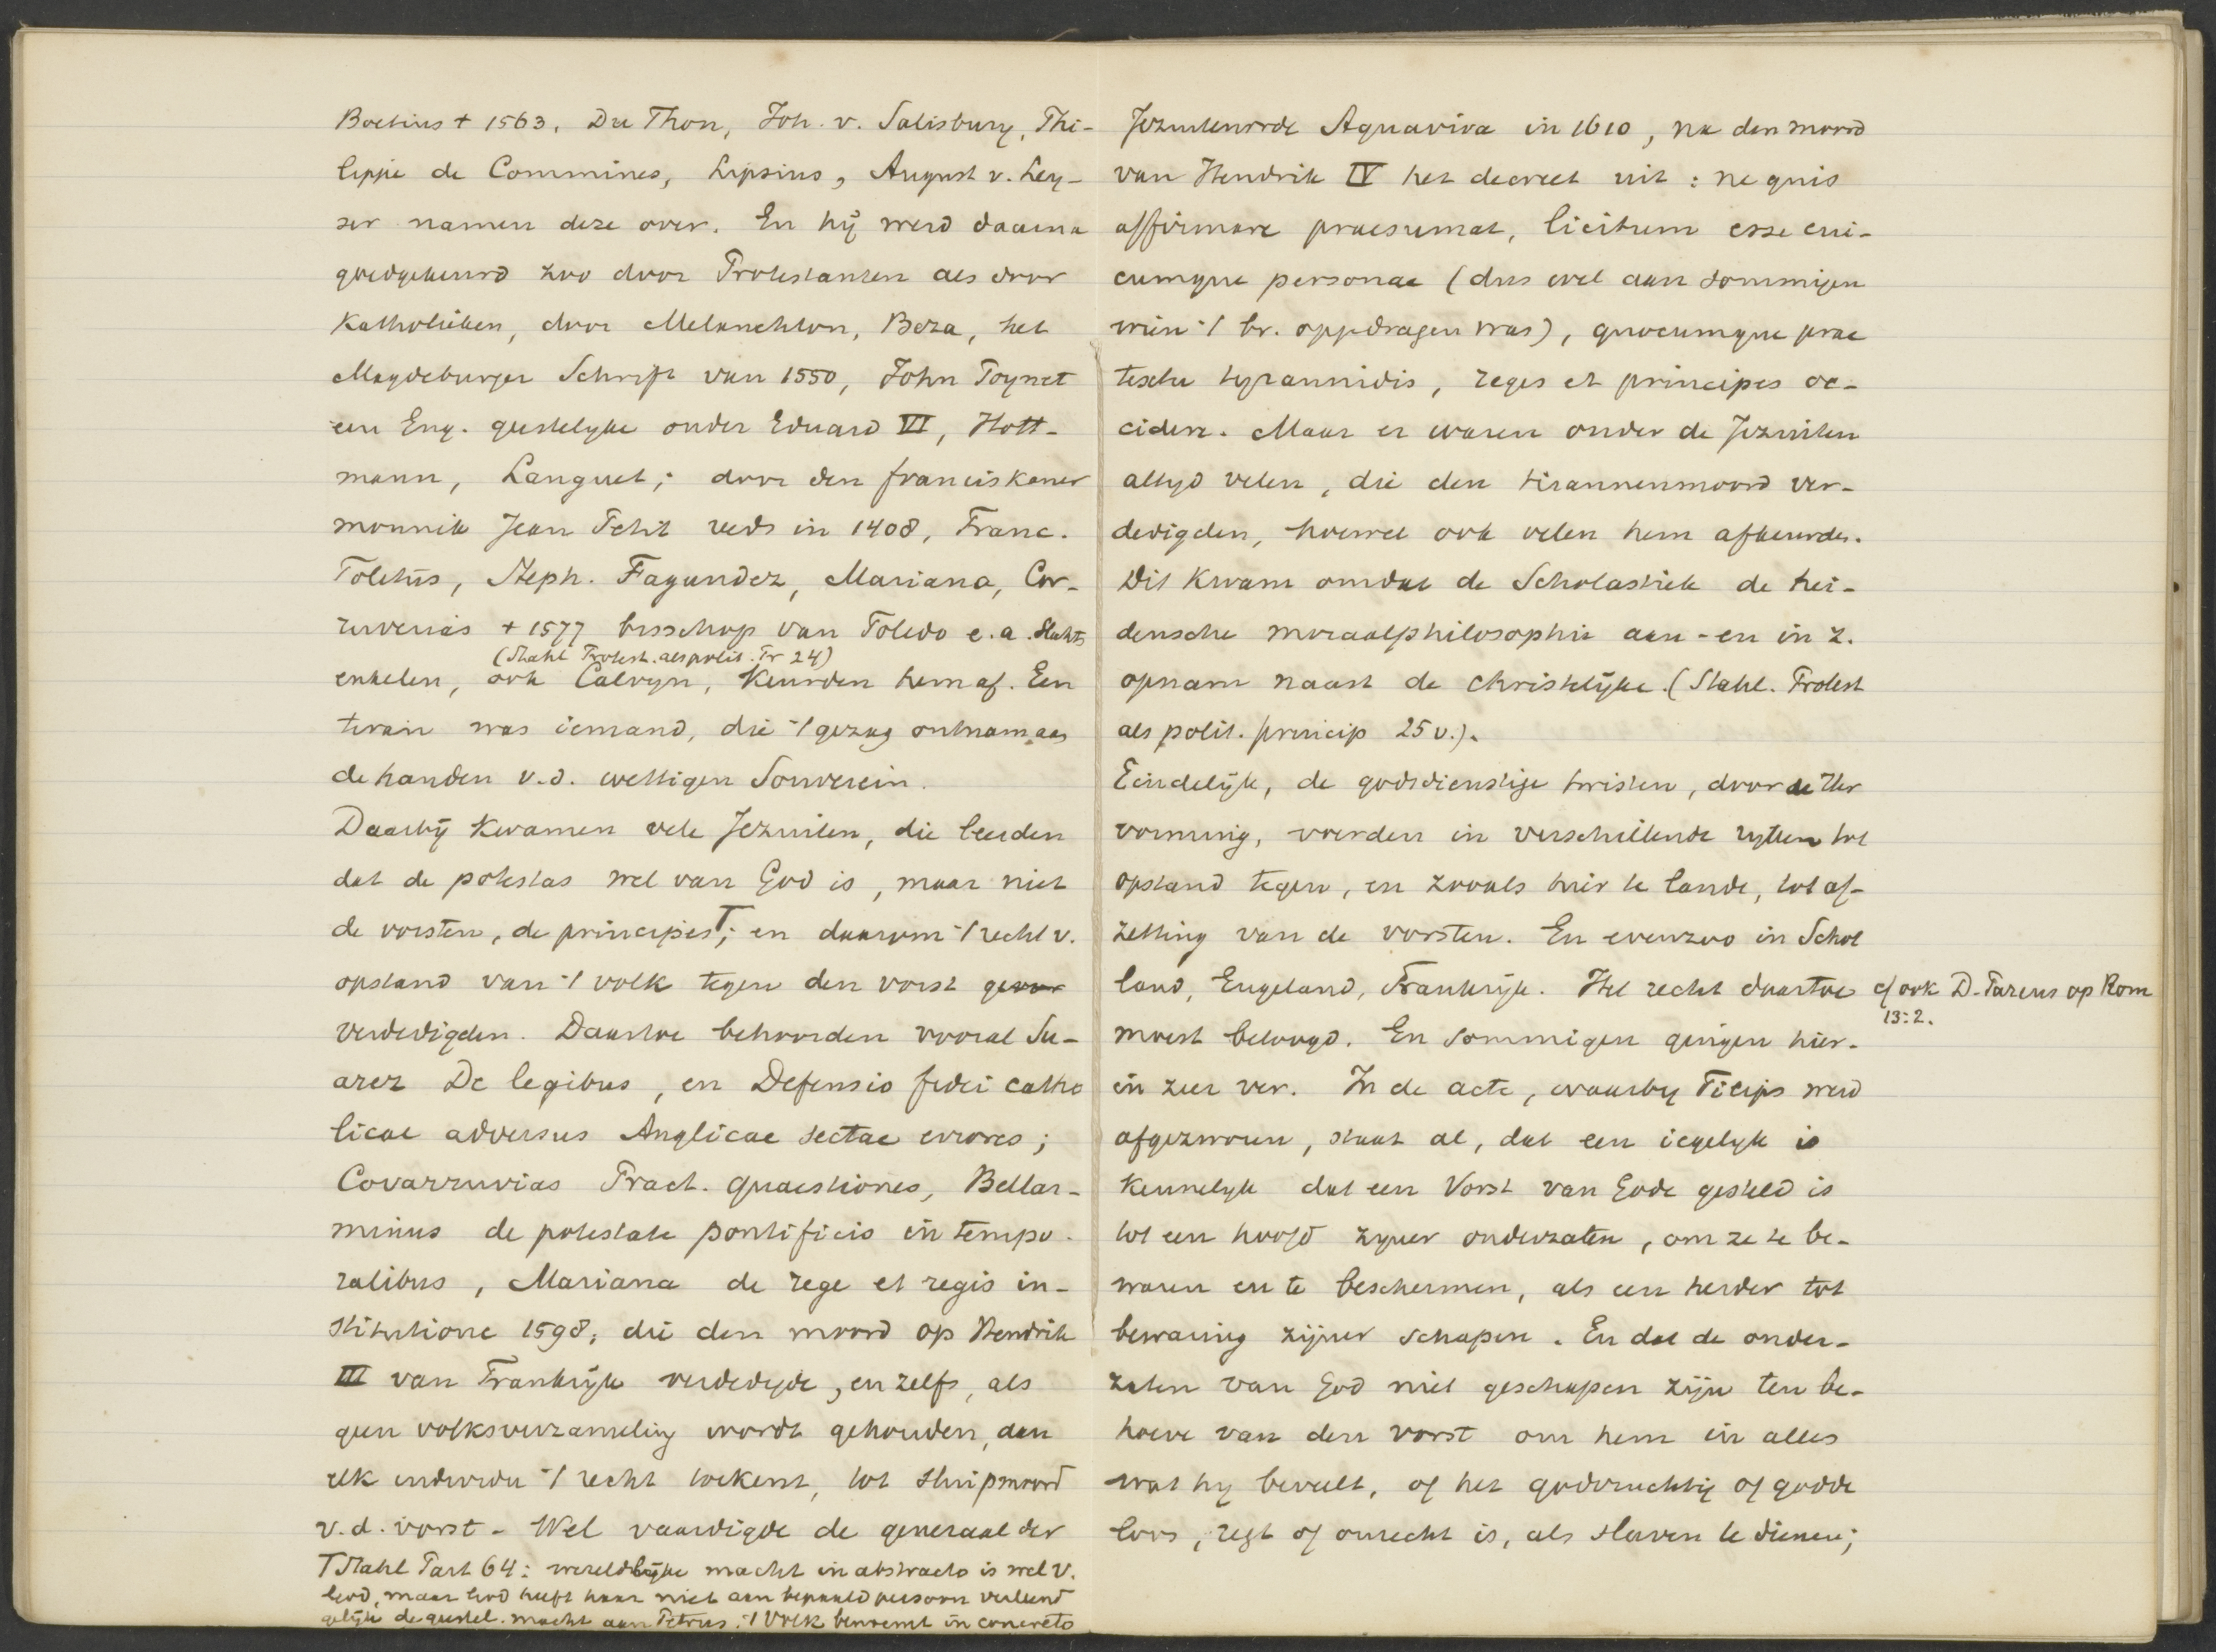 Boetius † 1563, Du Thou, Joh. v. Salisbury, Phi-
lippe de Commines, Lipsius, August v. Ley-
ser namen deze over. En hij werd daarna
goedgekeurd zoo door Protestanten als door
Katholieken, door Melanchton, Beza, het
Magdeburger Schrift van 1550, John Poynet
een Eng. geestelyke onder Eduard VI, Hott-
mann, Languet; door den franciskaner
monnik Jean Petit reeds in 1408, Franc.
Toletus, Steph. Fagundez, Mariana, Cor-
ruverias † 1577 bisschop van Toledo e. a. Slechts
(Stahl Protest. als polit. Pr 24)
enkelen, ook Calvyn, keurden hem af. Een
tiran was iemand, die 't gezag ontnam aan
de handen v. d. wettigen Souverein.
Daarbij kwamen vele Jezuiten, die leerden
dat de potestas wel van God is, maar niet
de vorsten, de principes T; en daarom 't recht v.
opstand van 't volk tegen den vorst
verdedigden. Daartoe behoorden vooral Su-
arez De legibus, en Defensio fidei catho
licae adversus Anglicae sectae errores;
Covarruvias Pract. quaestiones, Bellar-
minus de potestate pontificis in tempo-
ralibus, Mariana de rege et regis in-
stitutione 1598, die den moord op Hendrik
III van Frankrijk verdedigde, en zelfs, als
geen volksverzameling wordt gehouden, aan
elk individu 't recht toekent, tot sluipmoord
v. d. vorst - Wel vaardigde de generaal der
T Stahl Part 64: wereldlijke macht in abstracto is wel v.
God, maar God heeft haar niet aan bepaald persoon verleend
gelijk de geestel. macht aan Petrus. 't Volk benoemt in concreto
Jezuitenorde Aquaviva in 1610, na den moord
van Hendrik IV het decreet uit: ne quis
affirmare praesumat, licitum esse cui-
cumque personae (dus wel aan sommigen
wien 't br. opgedragen was), quocumque prae
textu tyrannidis, reges et principes oc-
cidere. Maar er waren onder de Jezuiten
altyd velen, die den tirannenmoord ver-
dedigden, hoewel ook velen hem afkeurden.
Dit kwam omdat de Scholastiek de hei-
densche moraalphilosophie aan - en in z.
opnam naast de christelijke. (Stahl. Protest
als polit. princip 25 v.).
Eindelijk, de godsdienstige twisten, door de Her
vorming, voerden in verschillende ryken tot
opstand tegen, en zooals hier te lande, tot af-
zetting van de vorsten. En evenzoo in Schot
land, Engeland, Frankrijk. Het recht daartoe
cf ook D. Pareus op Rom
13:2.
moest betoogd. En sommigen gingen hier-
in zeer ver. In de acte, waarby Filips werd
afgezworen, staat al, dat een iegelyk is
kennelyk dat een Vorst van Gode gesteld is
tot een hoofd zyner onderzaten, om ze te be-
waren en te beschermen, als een herder tot
bewaring zijner schapen. En dat de onder-
zaten van God niet geschapen zijn ten be-
hoeve van den vorst om hem in alles
wat hy beveelt, of het godvruchtig of godde
loos, regt of onrecht is, als slaven te dienen;